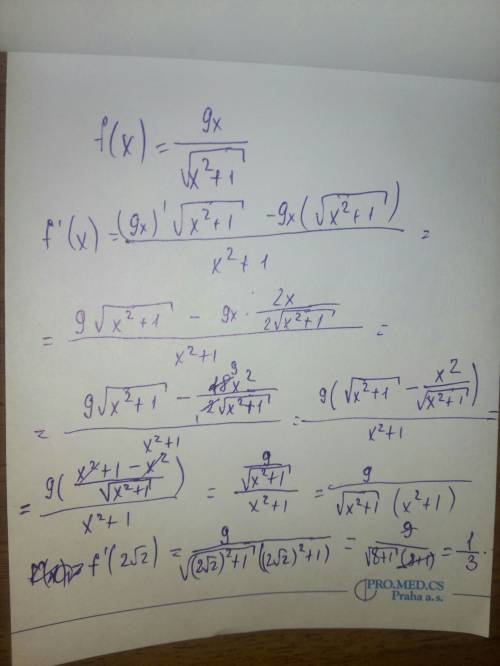 f(x) = 9x / √(x²+1)
f'(x) = ((9x)' √(x²+1) - 9x(√(x²+1))) / (x²+1) =
= (9√(x²+1) - 9x · 2x / (2√(x²+1))) / (x²+1) =
= (9√(x²+1) - 18x² / (2√(x²+1))) / (x²+1) = 9(√(x²+1) - x² / √(x²+1)) / (x²+1) =
= 9((x²+1-x²) / √(x²+1)) / (x²+1) = (9 / √(x²+1)) / (x²+1) = 9 / (√(x²+1) (x²+1))
f'(2√2) = 9 / (√((2√2)²+1) ((2√2)²+1)) = 9 / (√(8+1) (8+1)) = 1/3.
PRO.MED.CS
Praha a.s.